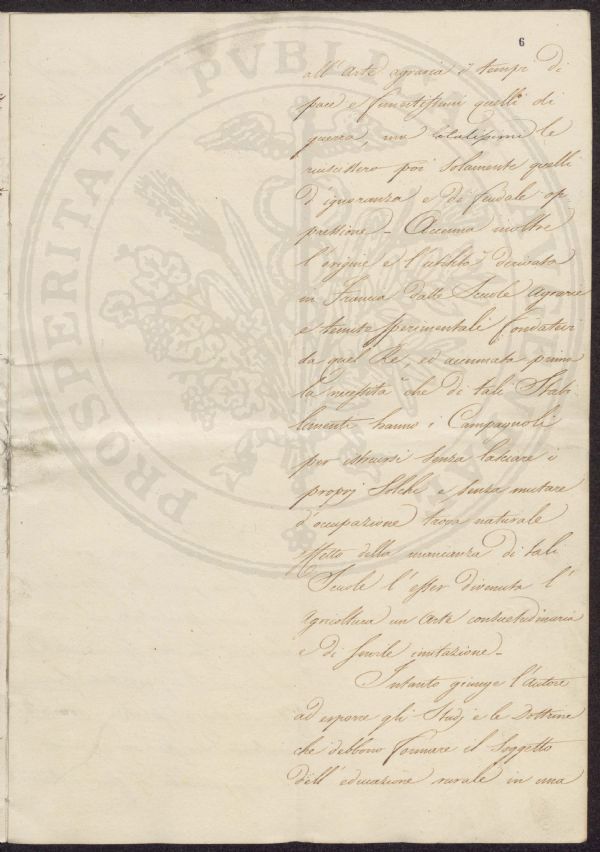 6
all' Arte agraria i tempi di
pace e funestissimi quelli di
guerra, ma fatalissime le
riuscissero poi solamente quelli
d'ignoranza e di feudale op
pressione – Accenna inoltre
l'origine e l'utilità derivata
in Francia dalle Scuole Agrarie
e tenute sperimentali fondatevi
da quel Re, ed accennata prima
la necessità che di tali Stabi
limenti hanno i Campagnoli
per istruirsi senza lasciare i
proprj Solchi e senza mutare
d'occupazione trova naturale
effetto della mancanza di tali
Scuole l'esser divenuta l'
Agricoltura un Arte consuetudinaria
e di servile imitazione –
Intanto giunge l'Autore
ad esporre gli Studj e le Dottrine
che debbono formare il Soggetto
dell' educazione rurale in una
PROSPERITATI PVBLICAE